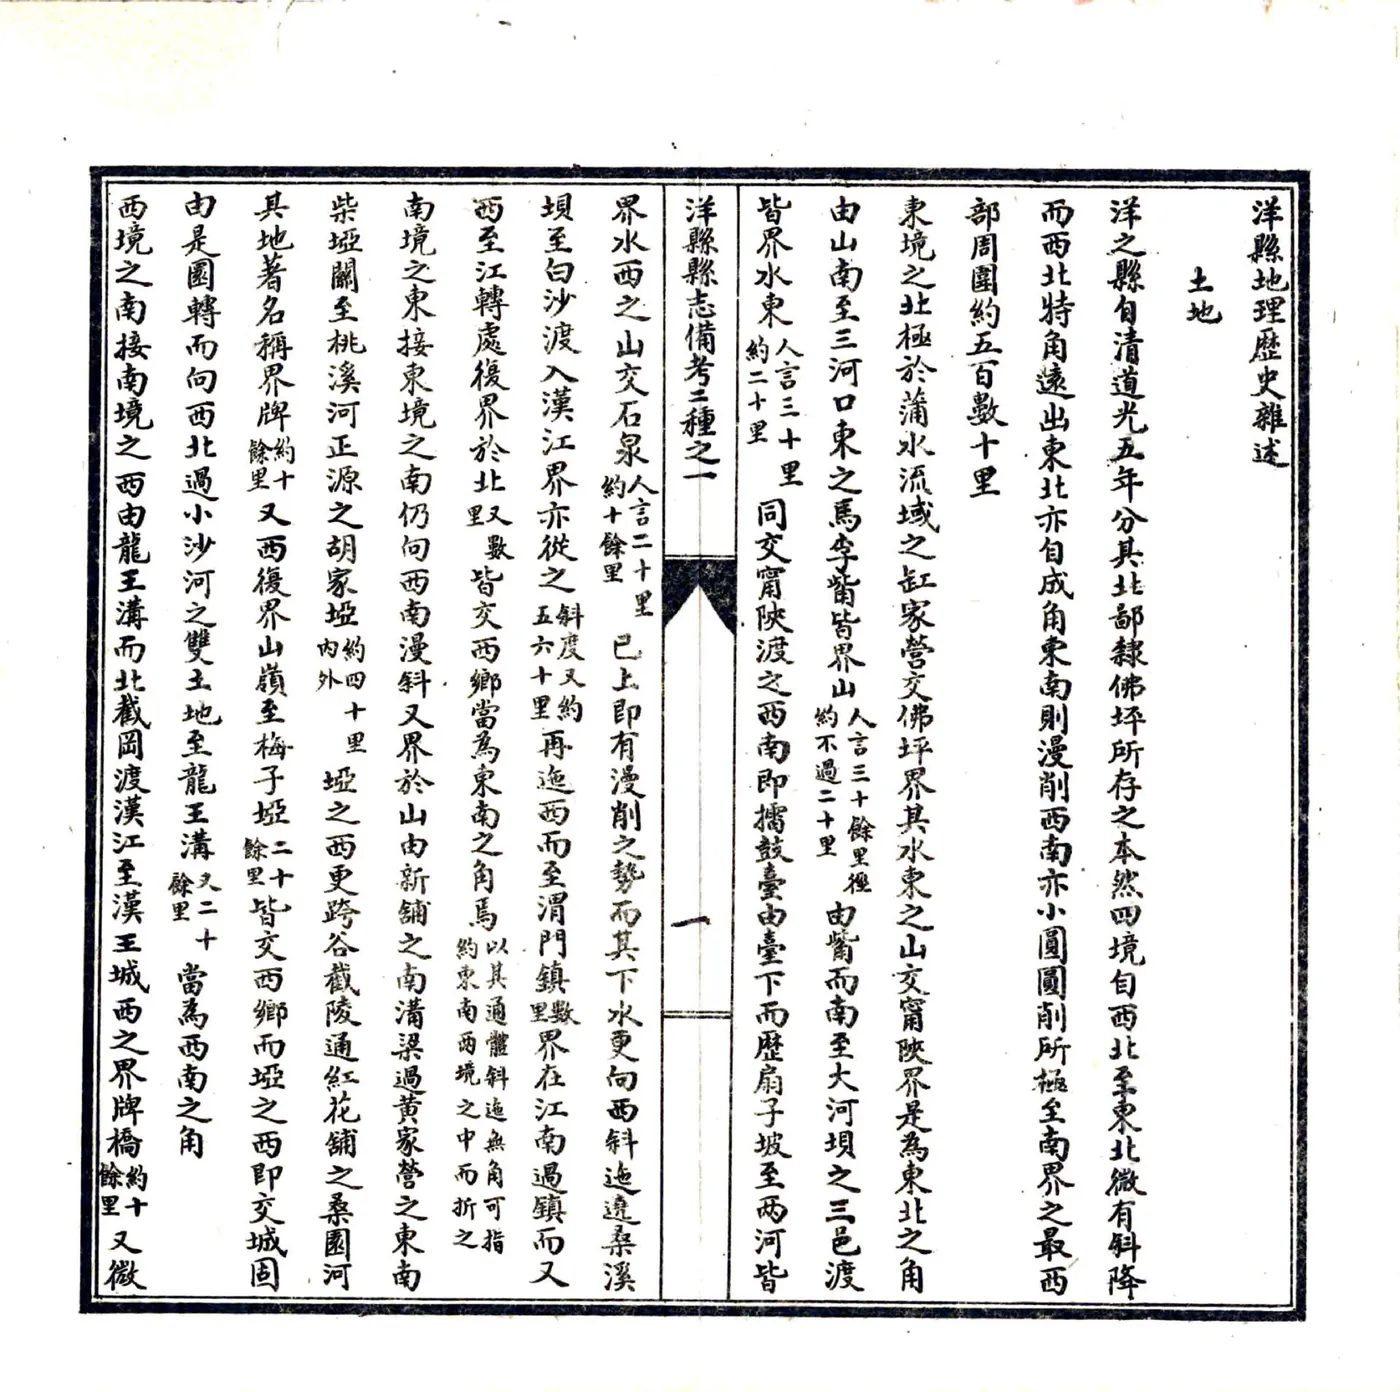 洋縣地理歷史雜述
土地
洋之縣自清道光五年分其北鄙隸佛坪所存之本然四境自西北至東北微有斜降
而西北特角遠出東北亦自成角東南則漫削西南亦小圓圓削所極至南界之最西
部周圍約五百數十里
東境之北極於蒲水流域之缸家營交佛坪界其水東之山交甯陝界是為東北之角
由山南至三河口東之馬李觜皆界山人言三十餘里徑約不過二十里由觜而南至大河壩之三邑渡
皆界水東人言三十里約二十里同交甯陝渡之西南即擂鼓臺由臺下而歷扇子坡至两河皆
洋縣縣志備考二種之一
一
界水西之山交石泉人言二十里約十餘里已上即有漫削之勢而其下水更向西斜迤遶桑溪
垻至白沙渡入漢江界亦從之斜度又約五六十里再迤西而至渭門鎮數里界在江南過鎮而又
西至江轉處復界於北又數里皆交西鄉當為東南之角焉以其通體斜迤無角可指約東南两境之中而折之
南境之東接東境之南仍向西南漫斜又界於山由新舖之南溝梁過黃家營之東南
柴埡關至桃溪河正源之胡家埡約四十里內外埡之西更跨谷截陵通紅花舖之桑園河
其地著名稱界牌約十餘里又西復界山嶺至梅子埡二十餘里皆交西鄉而埡之西即交城固
由是園轉而向西北過小沙河之雙土地至龍王溝又二十餘里當為西南之角
西境之南接南境之西由龍王溝而北截岡渡漢江至漢王城西之界牌橋約十餘里又微